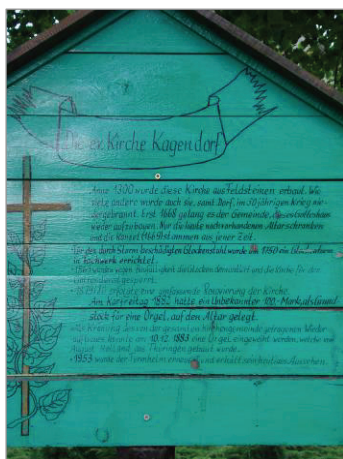 Die ev. Kirche Kagendorf
Anno 1300 wurde diese Kirche aus Feldsteinen erbaut. Wie
viele andere wurde auch sie, samt Dorf, im 30jährigen Krieg nie-
dergebrannt. Erst 1668 gelang es der Gemeinde, dieses Gotteshaus
wieder aufzubauen. Nur die heute noch vorhandenen Altarschranken
und die Kanzel (1668) stammen aus jener Zeit.
Für den durch Sturm beschädigten Glockenstuhl wurde 1750 ein
in Fachwerk errichtet.
wurden wegen Baufälligkeit die Glocken demontiert und die Kirche für den
Gottesdienst gesperrt.
erfolgte eine umfassende Renovierung der Kirche.
Am Karfreitag 1882 hatte ein Unbekannter 100-Mark als Grund
stock für eine Orgel, auf den Altar gelegt.
von der gesamten Kirchengemeinde getragenen Wieder
aufbaues konnte am 10.12.1883 eine Orgel eingeweiht werden, welche von
August aus Thüringen gebaut wurde.
1953 wurde der Turmhelm erneuert und erhielt sein heutiges Aussehen.